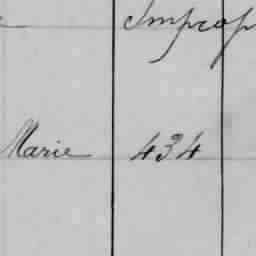 Improp
Marie 434